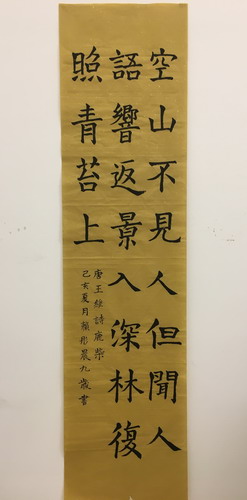 空山不見人但聞人
語響返景入深林復
照青苔上
唐王維詩鹿柴
己亥夏月顏彤晨九歲書